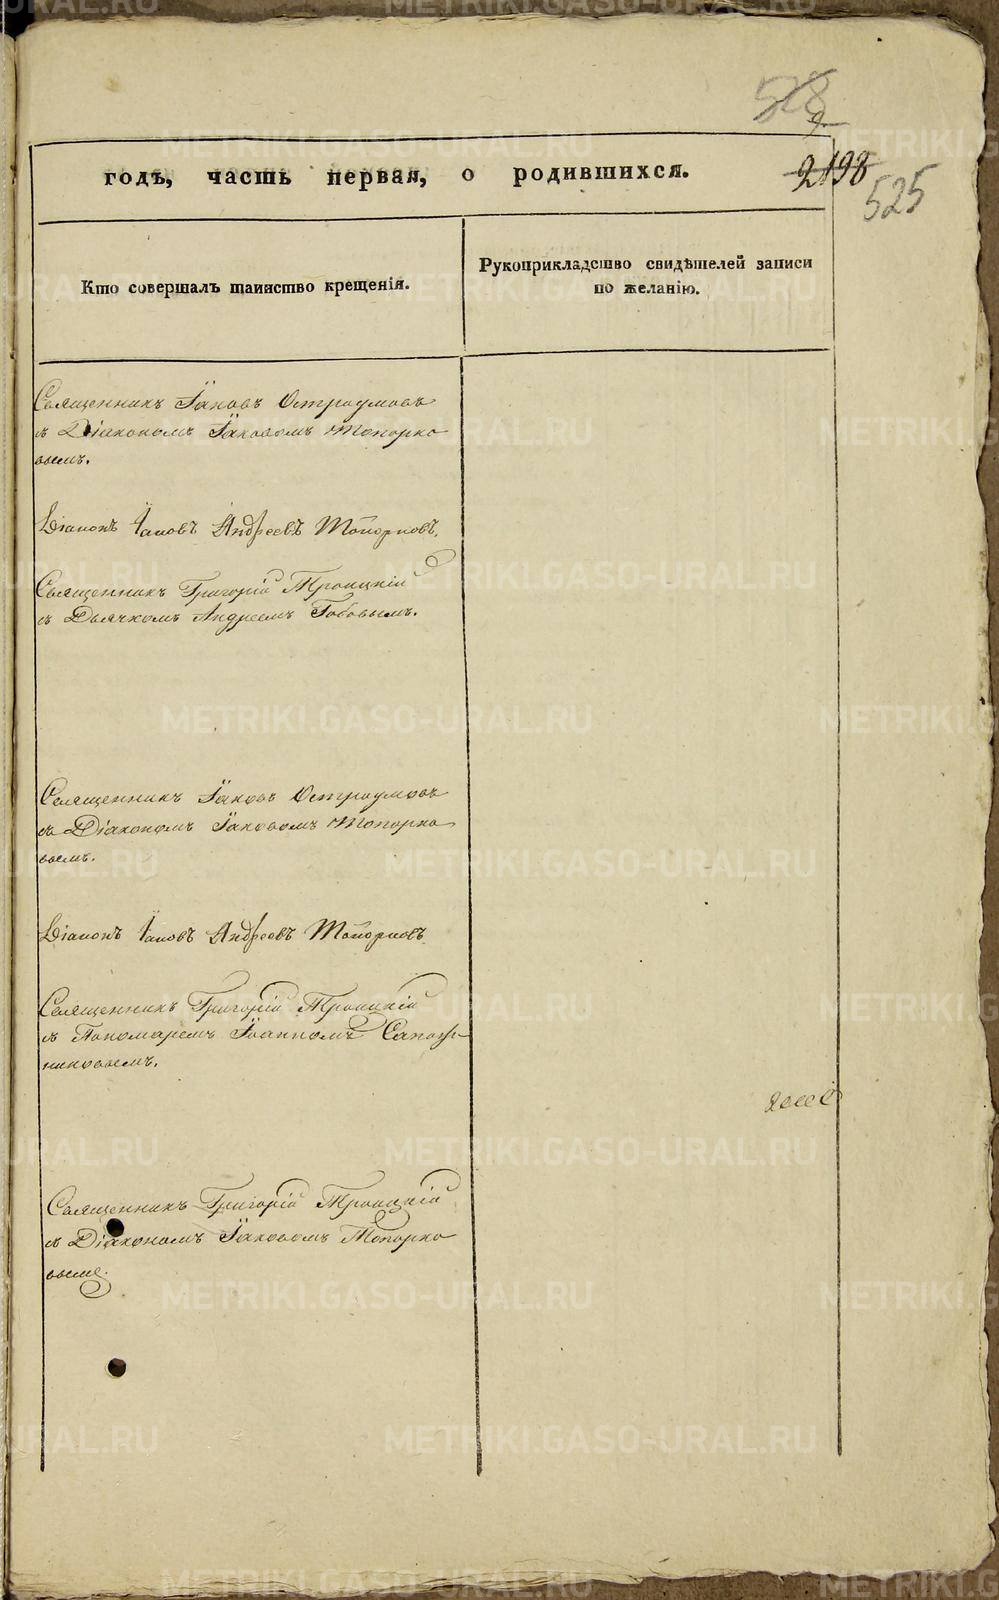 528
9
годъ, часть первая, о родившихся.
2198
525
Кто совершалъ таинство крещенія.
Рукоприкладство свидѣтелей записи
по желанію.
Священникъ Іаковъ Остроумовъ
съ Діакономъ Іаковомъ Топорко
вымъ.
Діаконъ Іаковъ Андреевъ Топорковъ.
Священникъ Григорій Троицкій
съ Дьячкомъ Андреемъ Бобовымъ.
Священникъ Іаковъ Остроумовъ
съ Діакономъ Іаковомъ Топорко
вымъ.
Діаконъ Іаковъ Андреевъ Топорковъ
Священникъ Григорій Троицкій
съ Пономаремъ Іоанномъ Сапож
никовымъ.
Священникъ Григорій Троицкій
съ Діакономъ Іаковомъ Топорко
вымъ.
METRIKI.GASO-URAL.RU